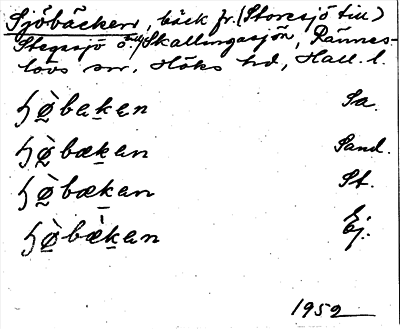 Sjöbäcken, bäck fr. (Storesjö till)
Stegsjö o. Skallingasjön, Rännes-
lövs sn. Höks hd, Hall. l.
ɧø̀bækan Sa.
ɧø̀bækan Sand.
ɧø̀bækan St.
ɧø̀bæ̀kan Ej.
1952